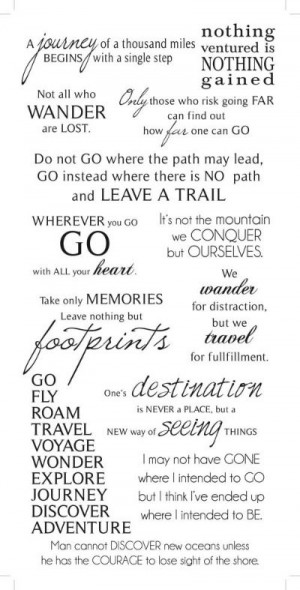 A journey of a thousand miles
BEGINS with a single step
nothing
ventured is
NOTHING
gained
Not all who
WANDER
are LOST.
Only those who risk going FAR
can find out
how far one can GO
Do not GO where the path may lead,
GO instead where there is NO path
and LEAVE A TRAIL
WHEREVER you GO
GO
with ALL your heart.
It's not the mountain
we CONQUER
but OURSELVES.
We
wander
for distraction,
but we
travel
for fullfillment.
Take only MEMORIES
Leave nothing but
footprints
GO
FLY
ROAM
TRAVEL
VOYAGE
WONDER
EXPLORE
JOURNEY
DISCOVER
ADVENTURE
One's destination
is NEVER a PLACE, but a
NEW way of seeing THINGS
I may not have GONE
where I intended to GO
but I think I've ended up
where I intended to BE.
Man cannot DISCOVER new oceans unless
he has the COURAGE to lose sight of the shore.